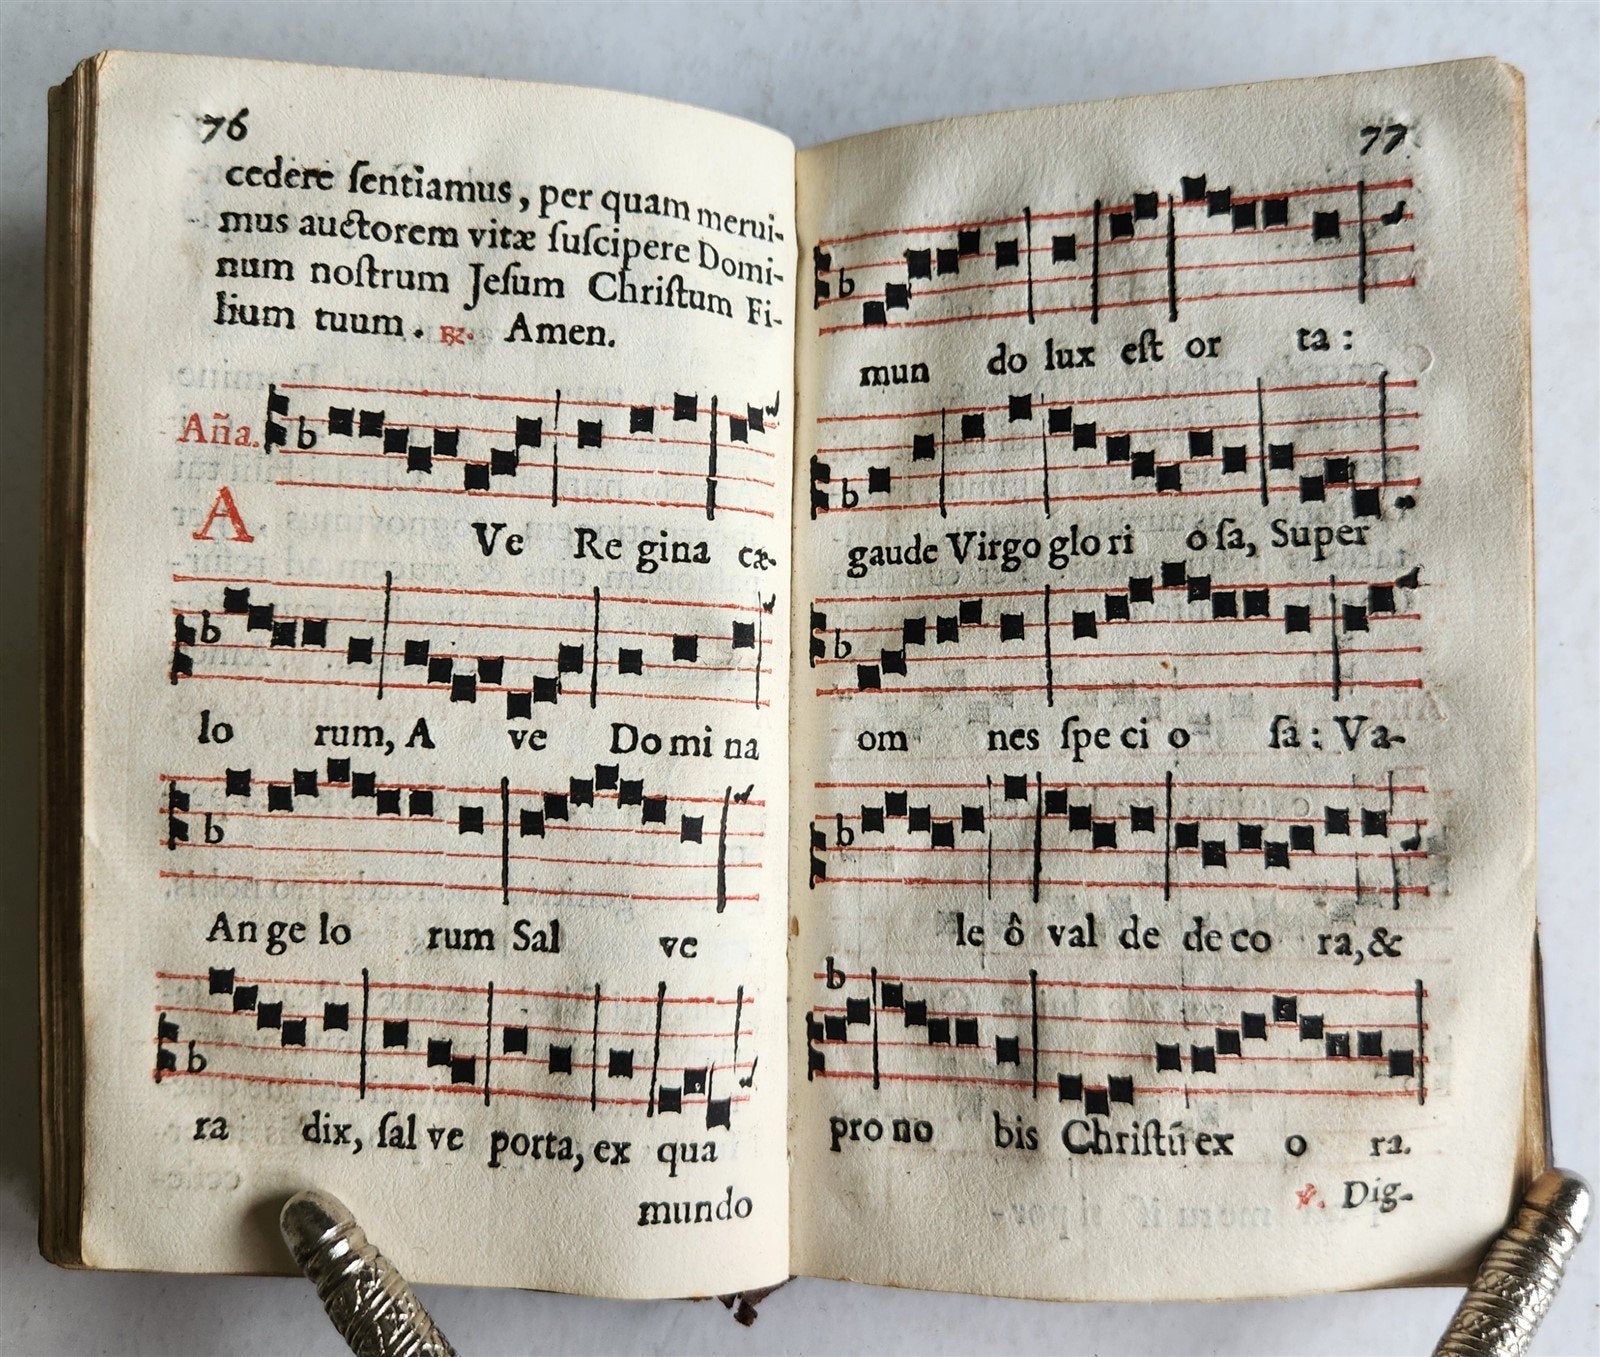 76
cedere ſentiamus, per quam merui-
mus auctorem vitæ ſuſcipere Domi-
num noſtrum Jeſum Chriſtum Fi-
lium tuum. ℟. Amen.
Aña.
AVe Re gina cæ-
lo rum, A ve Do mi na
An ge lo rum Sal ve
ra dix, ſal ve porta, ex qua
mundo
77
mun do lux eſt or ta:
gaude Virgo glo ri o ſa, Super
om nes ſpe ci o ſa: Va-
le ô val de de co ra, &
pro no bis Chriſtū ex o ra.
℣. Dig-